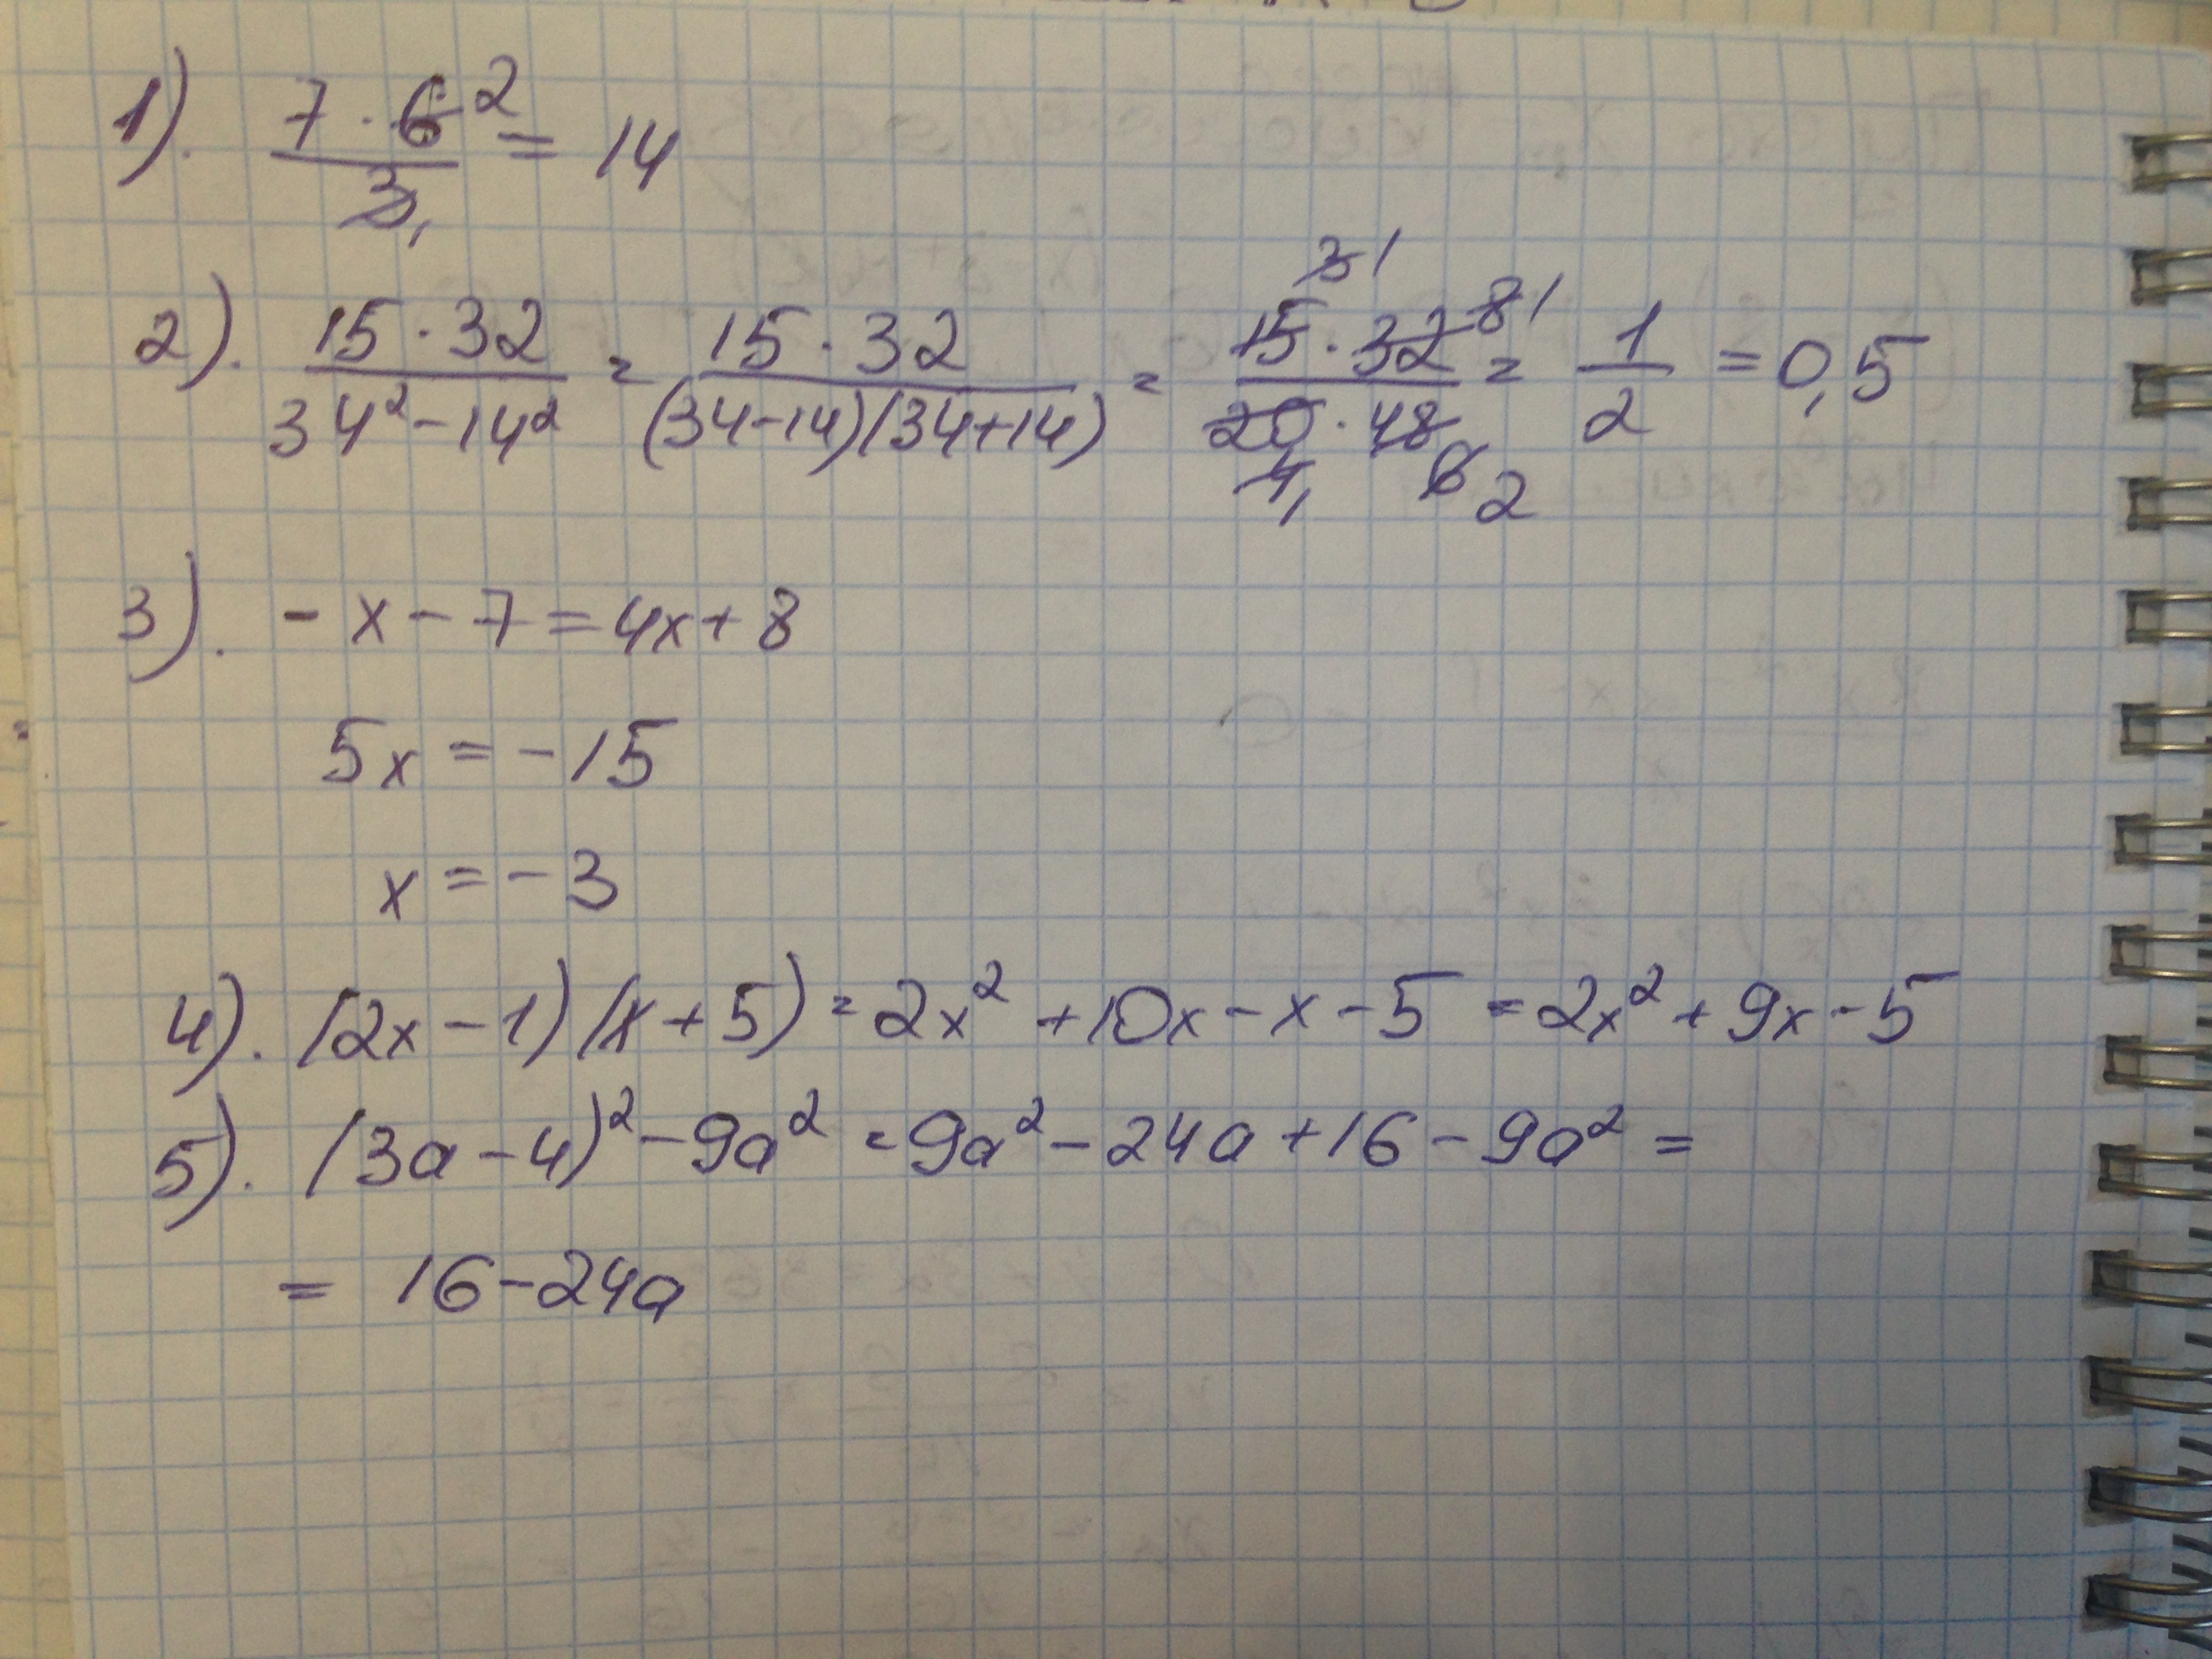 1). 7 · 6 2 / 3 1 = 14
2). 15 · 32 / 34² - 14² = 15 · 32 / (34-14)(34+14) = 15 3 1 · 32 8 1 / 20 4 1 · 48 6 2 = 1/2 = 0,5
3). - x - 7 = 4x + 8
5x = -15
x = -3
4). (2x - 1)(x + 5) = 2x² + 10x - x - 5 = 2x² + 9x - 5
5). (3a - 4)² - 9a² = 9a² - 24a + 16 - 9a² =
= 16 - 24a